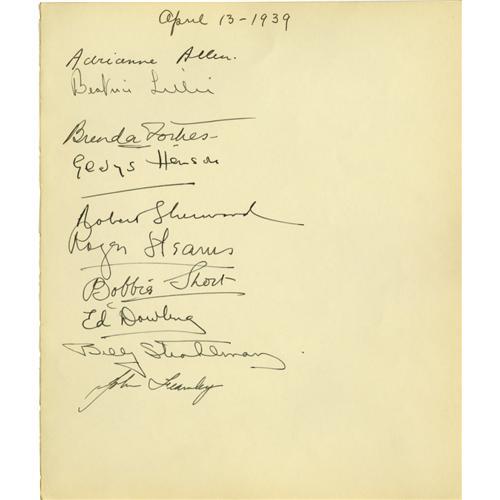 April 13-1939
Adrianne Allen.
Beatrice Lillie
Brenda Forbes
Gladys Henson
Robert Sherwood
Roger Stearns
Bobbie Short
Ed Dowling
Billy
John